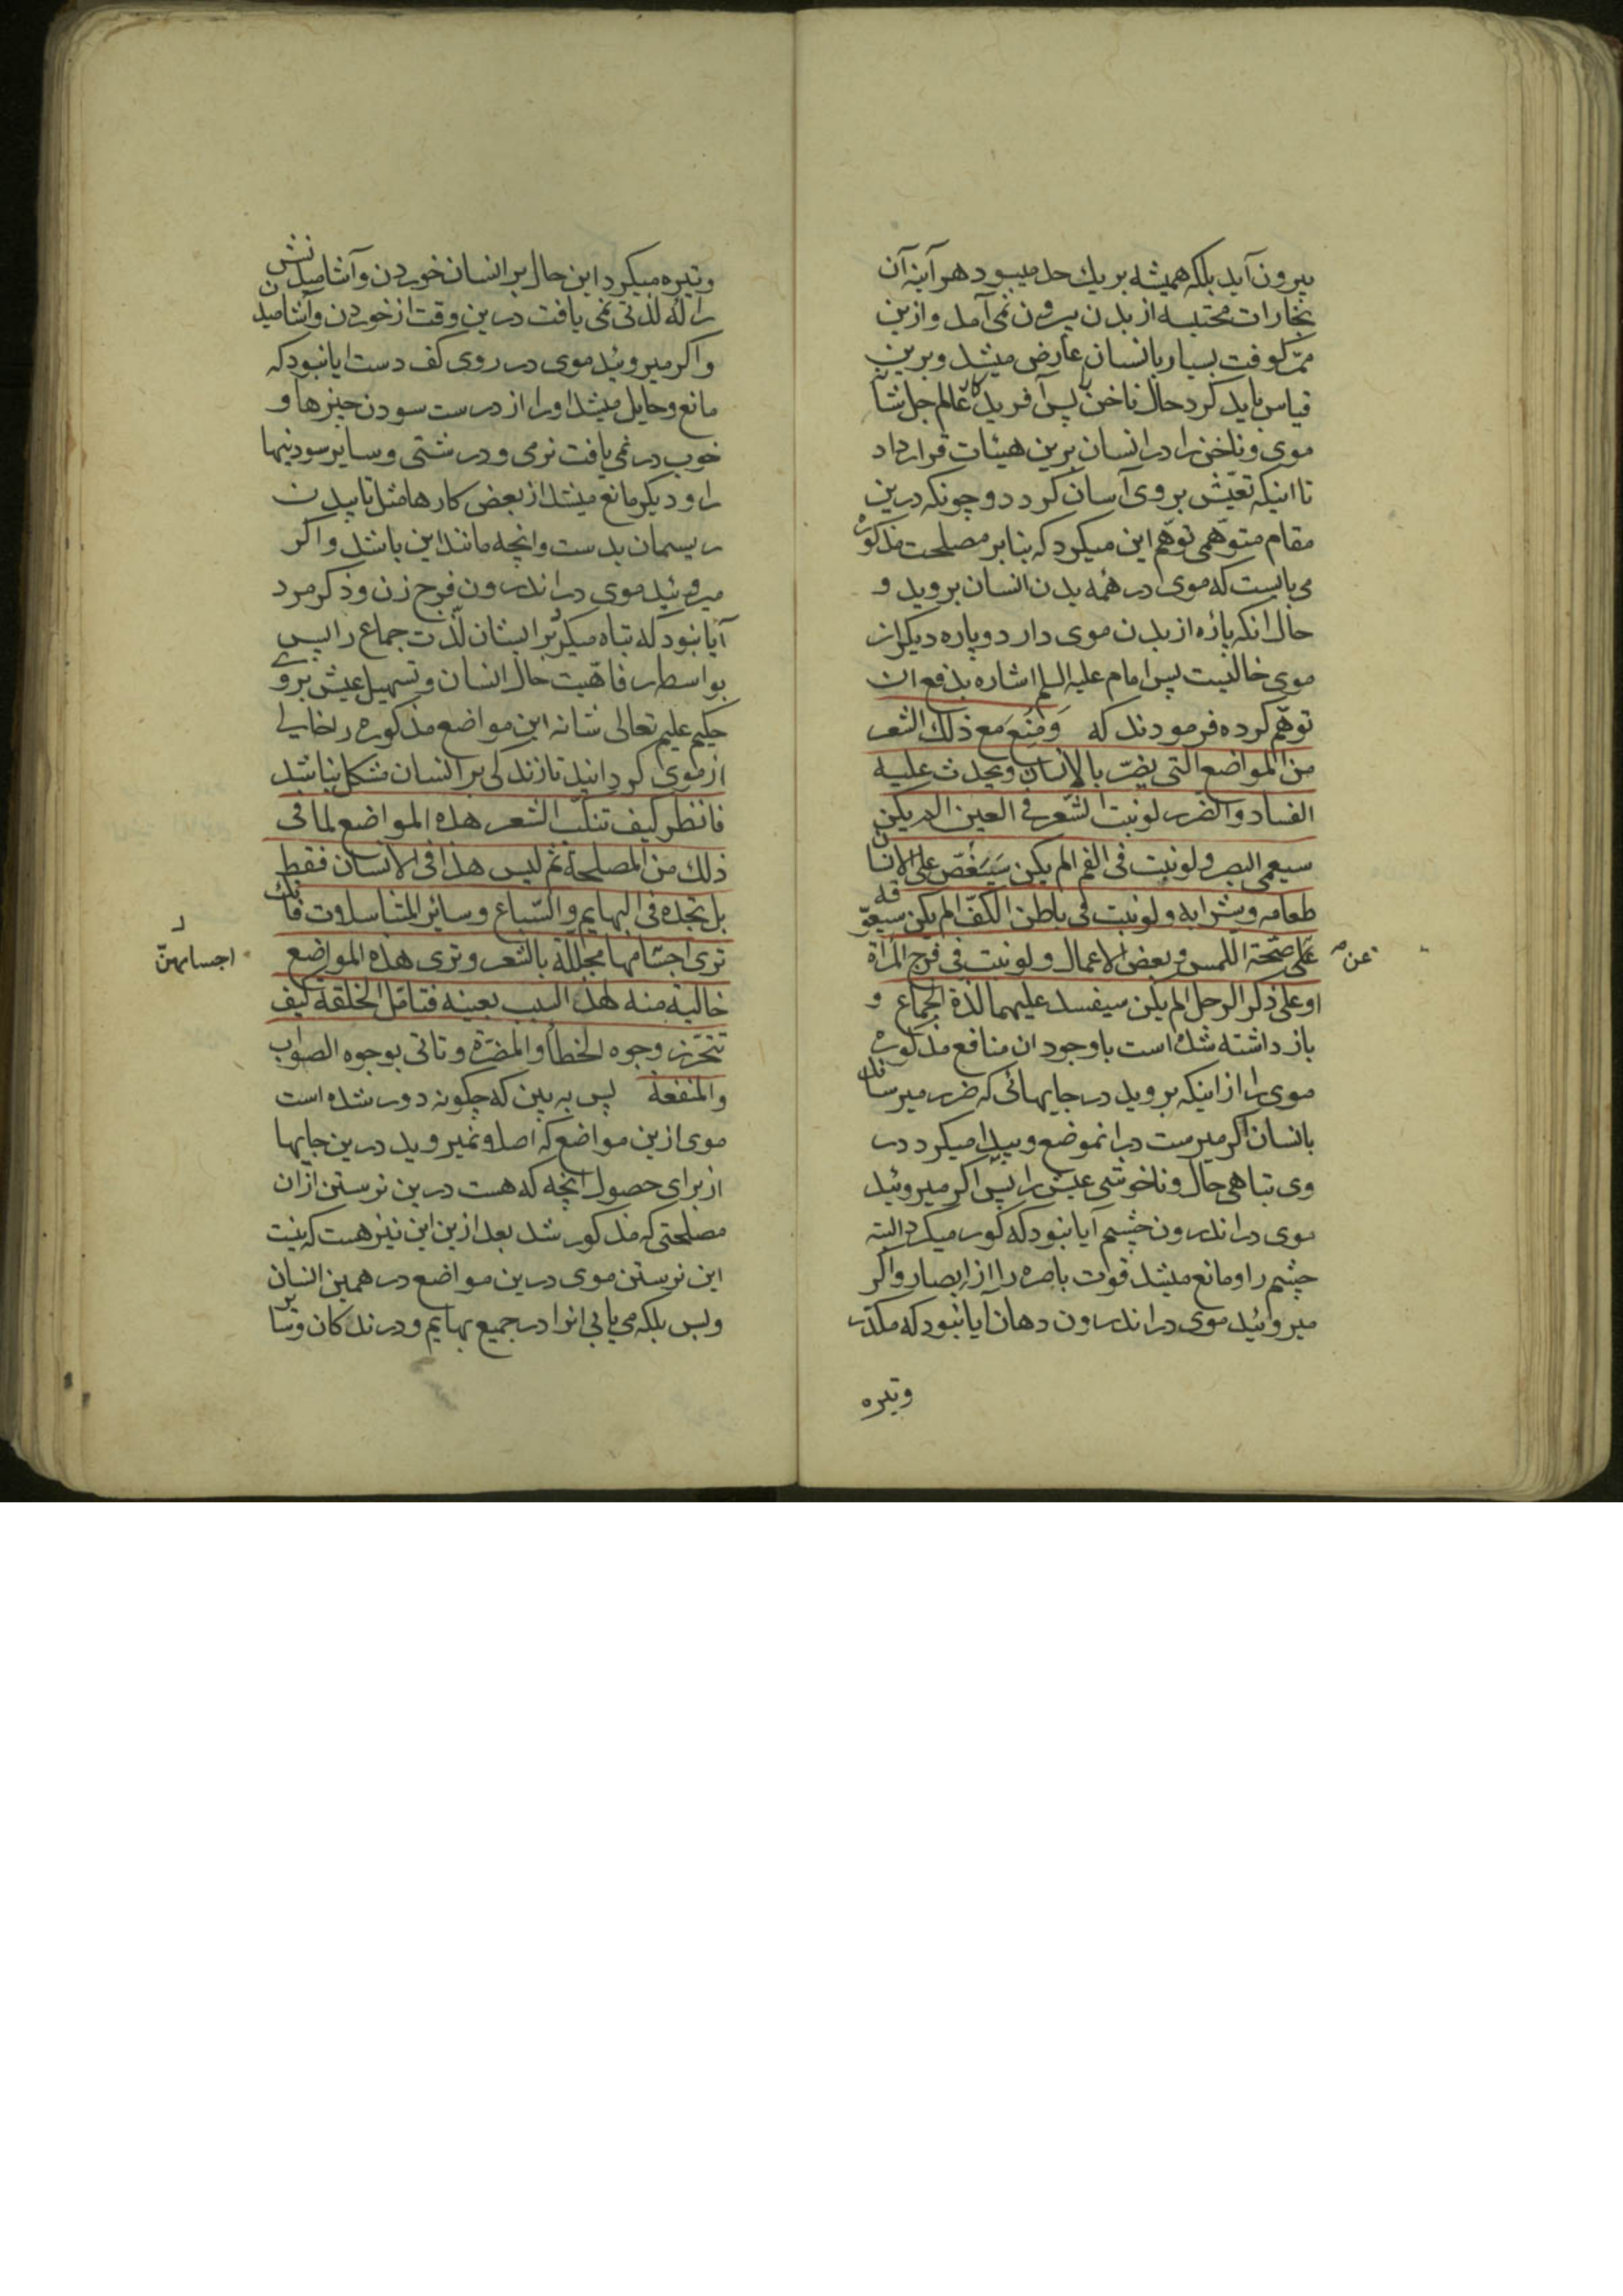 بیرون آید بلکه همیشه بریك حد میبود هر آینه آن
بخارات محتبسه از بدن بیرون نمی آمد و ازین
ممرّ کوفت بسیار بانسان عارض میشد و برین
قیاس باید کرد حال ناخن را پس آفریدگار عالم جل شانه
موی و ناخن را در انسان برین هیئات قرار داد
تا اینکه تعیّش بروی آسان کردد و چونکه درین
مقام متوهّمی توهّم این میکرد که بنابر مصلحت مذکوره
می بایست که موی در همه بدن انسان بروید و
حال انکه پاره از بدن موی دارد و پاره دیکر از
موی خالیست پس امام علیه السلم اشاره بدفع ان
توهّم کرده فرمودند که وَمُنِعَ مَع ذلك الشعر
من المواضع التی یضرّ بالانسان ویحدث علیه
الفساد والضرر لو نبت الشّعر فی العین الم یکن
سیعمی البصر ولو نبت فی الفم الم یکن سَیَنغّص علی الانسان
طعامه وشرابه ولو نبت فی باطن الکفّ الم یکن سیعوّقه
علی صحّة اللمس وبعض الاعمال ولو نبت فی فرج المراة
عن
او علی ذکر الرجل الم یکن سیفسد علیهما لذة الجماع و
باز داشته شده است با وجود ان منافع مذکوره
موی را از اینکه بروید در جایهائی که ضرر میرساند
بانسان اگر میرست در انموضع و پیدا میکرد در
وی تباهی حال و ناخوشی عیش را پس اگر میروئید
موی در اندرون چشم آیا نبود که کور میکرد البته
چشم را و مانع میشد قوات باصره را از ابصار و اگر
میروئید موی در اندرون دهان آیا نبود که مکدّر
وتیره
وتیره میکرد این حال بر انسان خوردن و آشامیدنش
را که لذّتی نمی یافت درین وقت از خوردن و آشامیدن
و اکر میروئید موی در روی کف دست ایا نبود که
مانع و حایل میشد او را از درست سودن چیزها و
خوب در نمی یافت نرمی و درشتی و سایر سودنیها
را و دیکر مانع میشد از بعض کارها مثل تابیدن
ریسمان بدست و انچه مانند این باشد و اکر
میروئید موی در اندرون فرج زن و ذکر مرد
آیا نبود که تباه میکرد بر ایشان لذّت جماع را پس
بواسطه رفاهّیت حال انسان و تسهیل عیش بروی
حکیم علیم تعالی شانه این مواضع مذکوره را خالی
از موی کردانید تا زندکی بر انسان مشکل نباشد
فانظر کیف تنکّب الشعر هذه المواضع لما فی
ذلك من المصلحة ثم لیس هذا فی الانسان فقط
بل تجده فی البهایم والسّباع وسائر المتناسلات فانك
تری اجسامها مجلّلة بالشعر وتری هذه المواضع
اجسامهنّ
خالیة منه لهذا السبب بعینه فتامّل الخلقة کیف
تتحرّز وجوه الخطأ والمضرّة وتاتی بوجوه الصواب
والمنفعة پس به بین که چکونه دور شده است
موی ازین مواضع که اصلا و نمیروید درین جایها
از برای حصول آنچه که هست درین نرستن ازان
مصلحتی که مذکور شد بعد ازین این نیز هست که نیست
این نرستن موی درین مواضع در همین انسان
و بس بلکه می یابی انرا در جمیع بهایم و درندکان و سایر